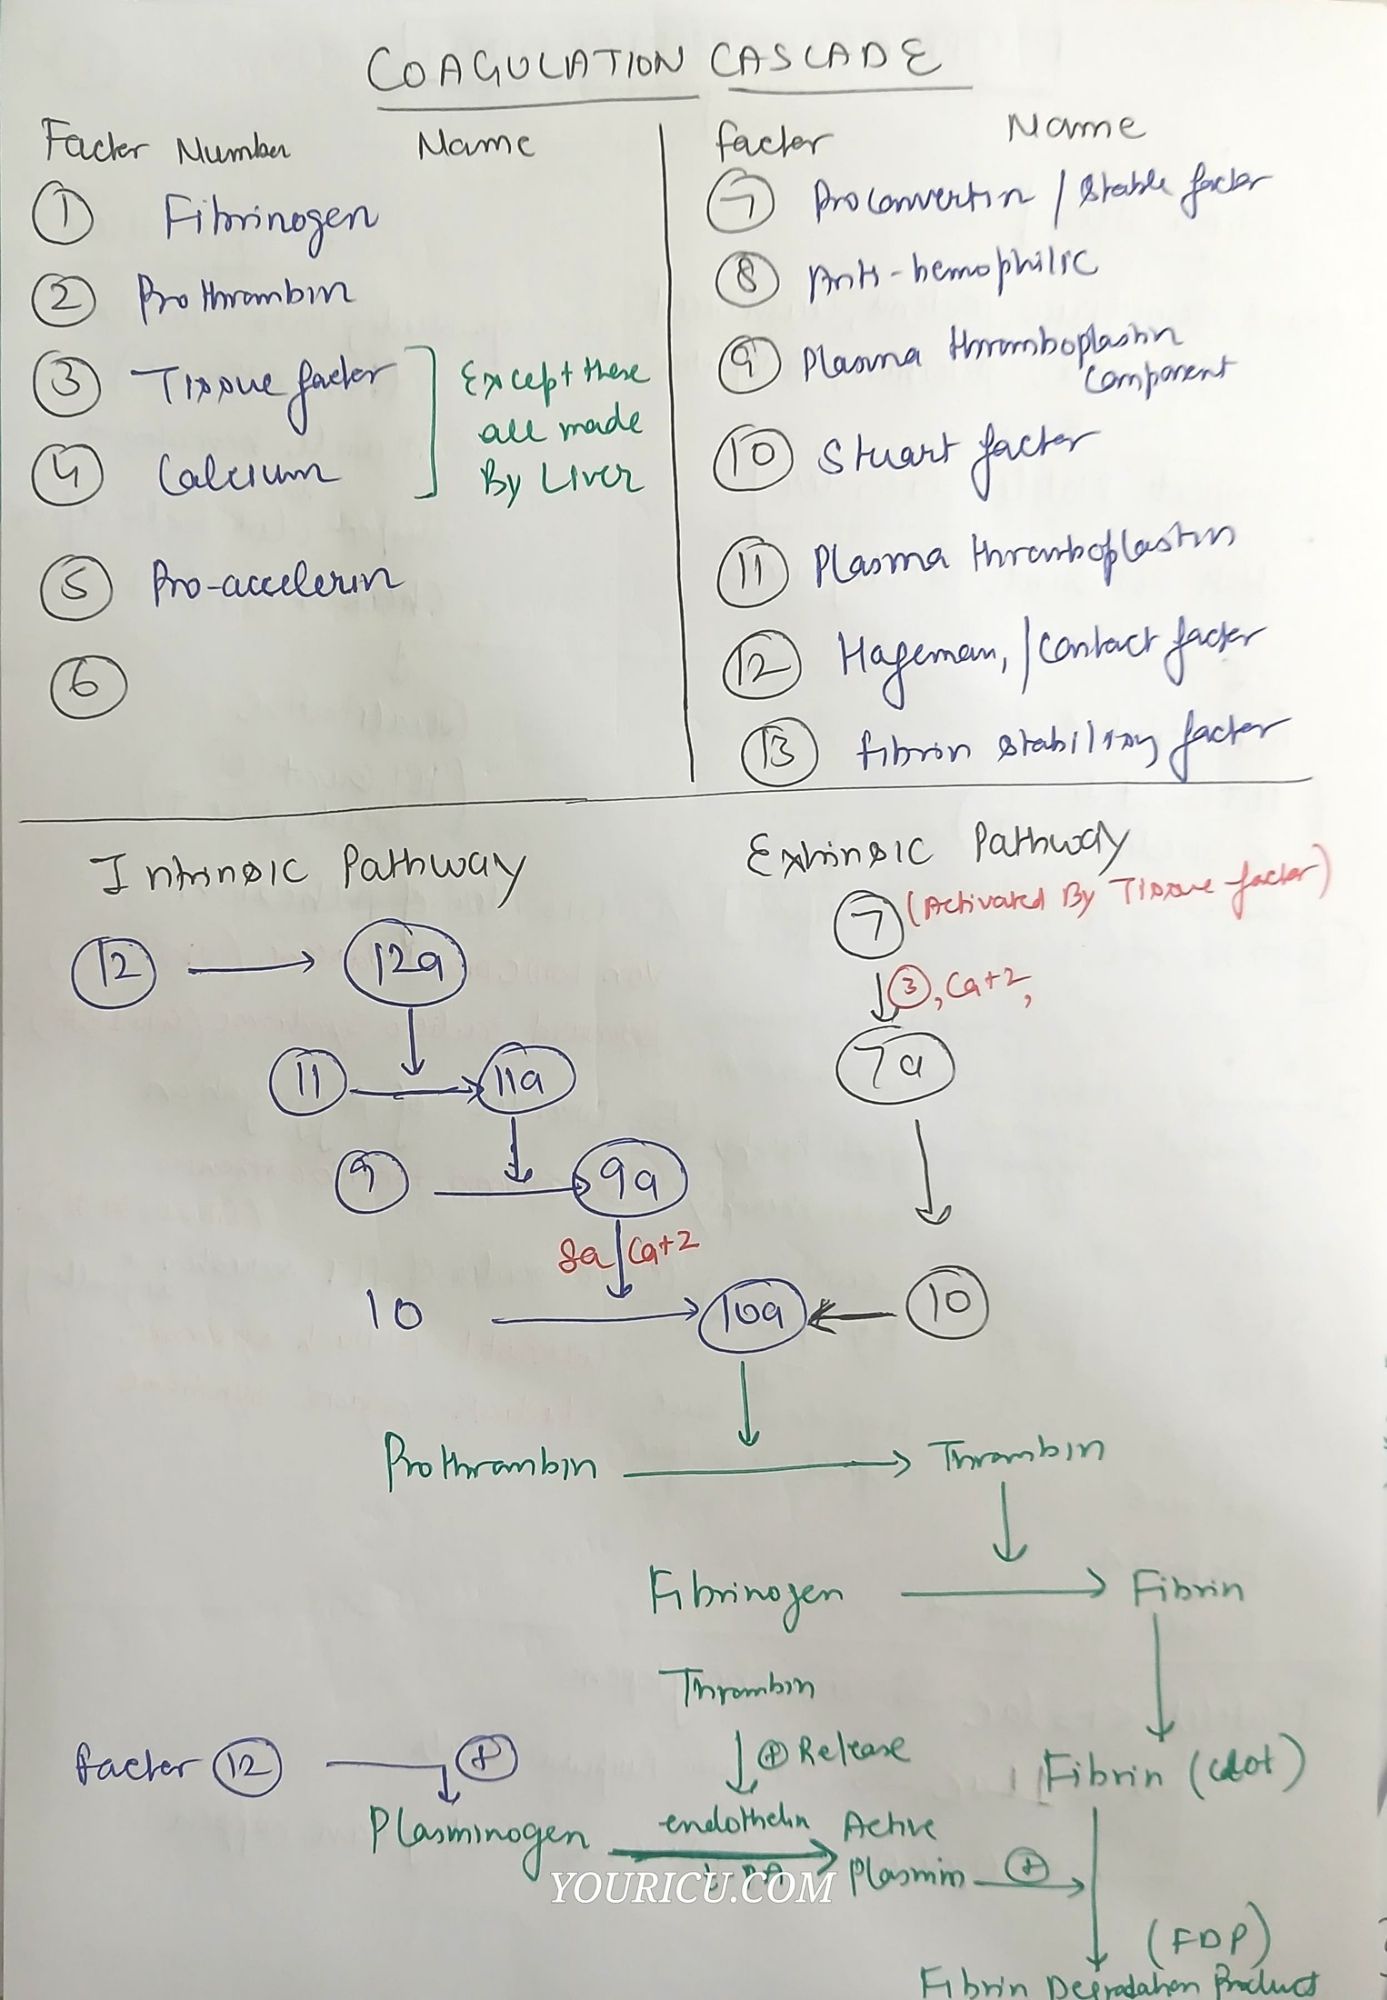 COAGULATION CASCADE
Factor Number Name
1 Fibrinogen
2 Prothrombin
3 Tissue factor
4 Calcium
Except these
all made
By Liver
5 Pro-accelerin
6
factor Name
7 Proconvertin / Stable factor
8 Anti-hemophilic
9 Plasma thromboplastin
component
10 Stuart factor
11 Plasma thromboplastin
12 Hageman, / Contact factor
13 fibrin stabilizing factor
Intrinsic Pathway
12 → 12a
11 → 11a
9 → 9a
8a Ca+2
10 → 10a ← 10
Extrinsic Pathway
7 (Activated By Tissue factor)
3, Ca+2,
7a
Prothrombin → Thrombin
Fibrinogen → Fibrin
Thrombin
+ Release
Factor 12 → +
Fibrin (clot)
Plasminogen → Active
endothelin
Plasmin + →
YOURICU.COM
(FDP)
Fibrin Degradation Product